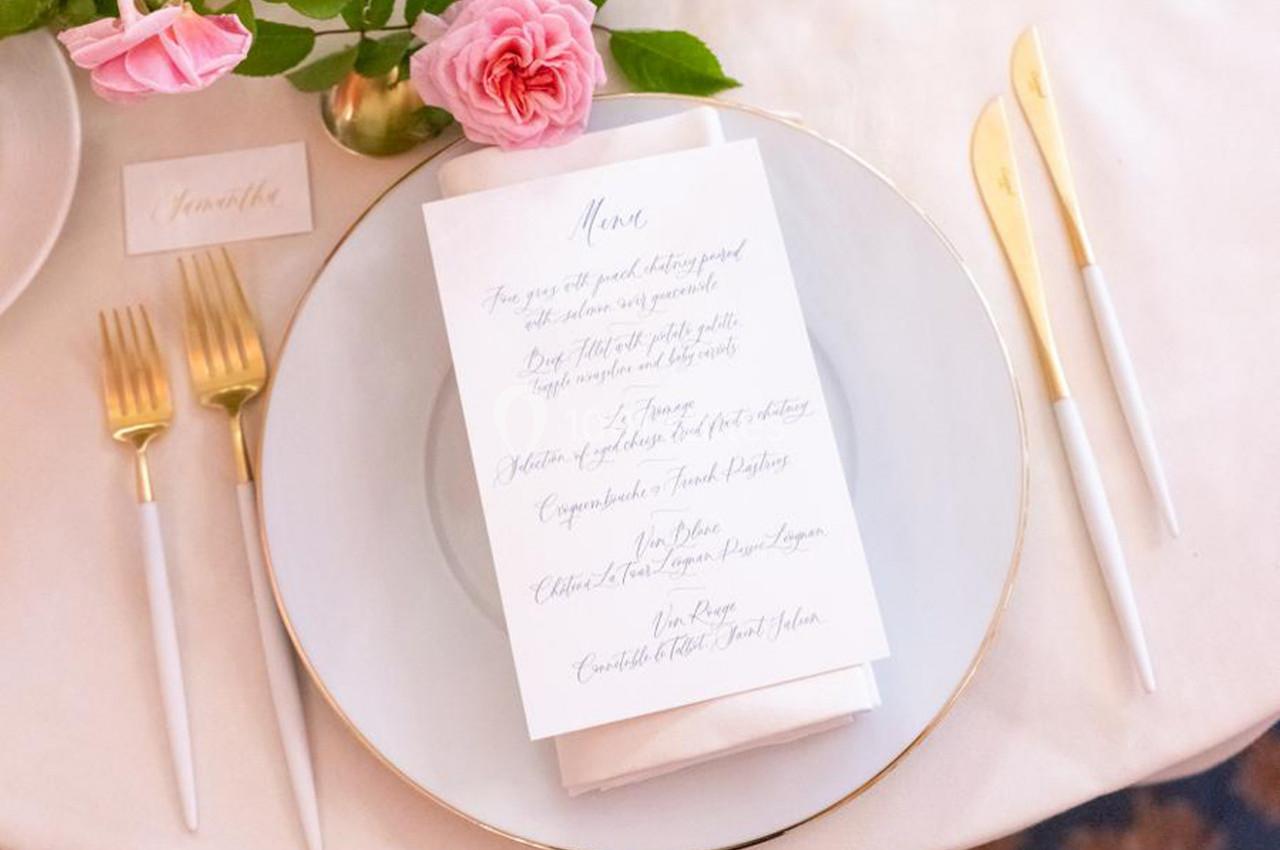 Samantha
Menu
Foie gras with peach chutney paired
with salmon over guacamole
Beef Fillet with potato galette,
truffle mouseline and baby carrots
La Fromage
Selection of aged cheese, dried fruit & chutney
Croquembouche & French Pastries
Vin Blanc
Château La Tour Léognan Pessac Léognan
Vin Rouge
Connétable de Talbot, Saint Julien